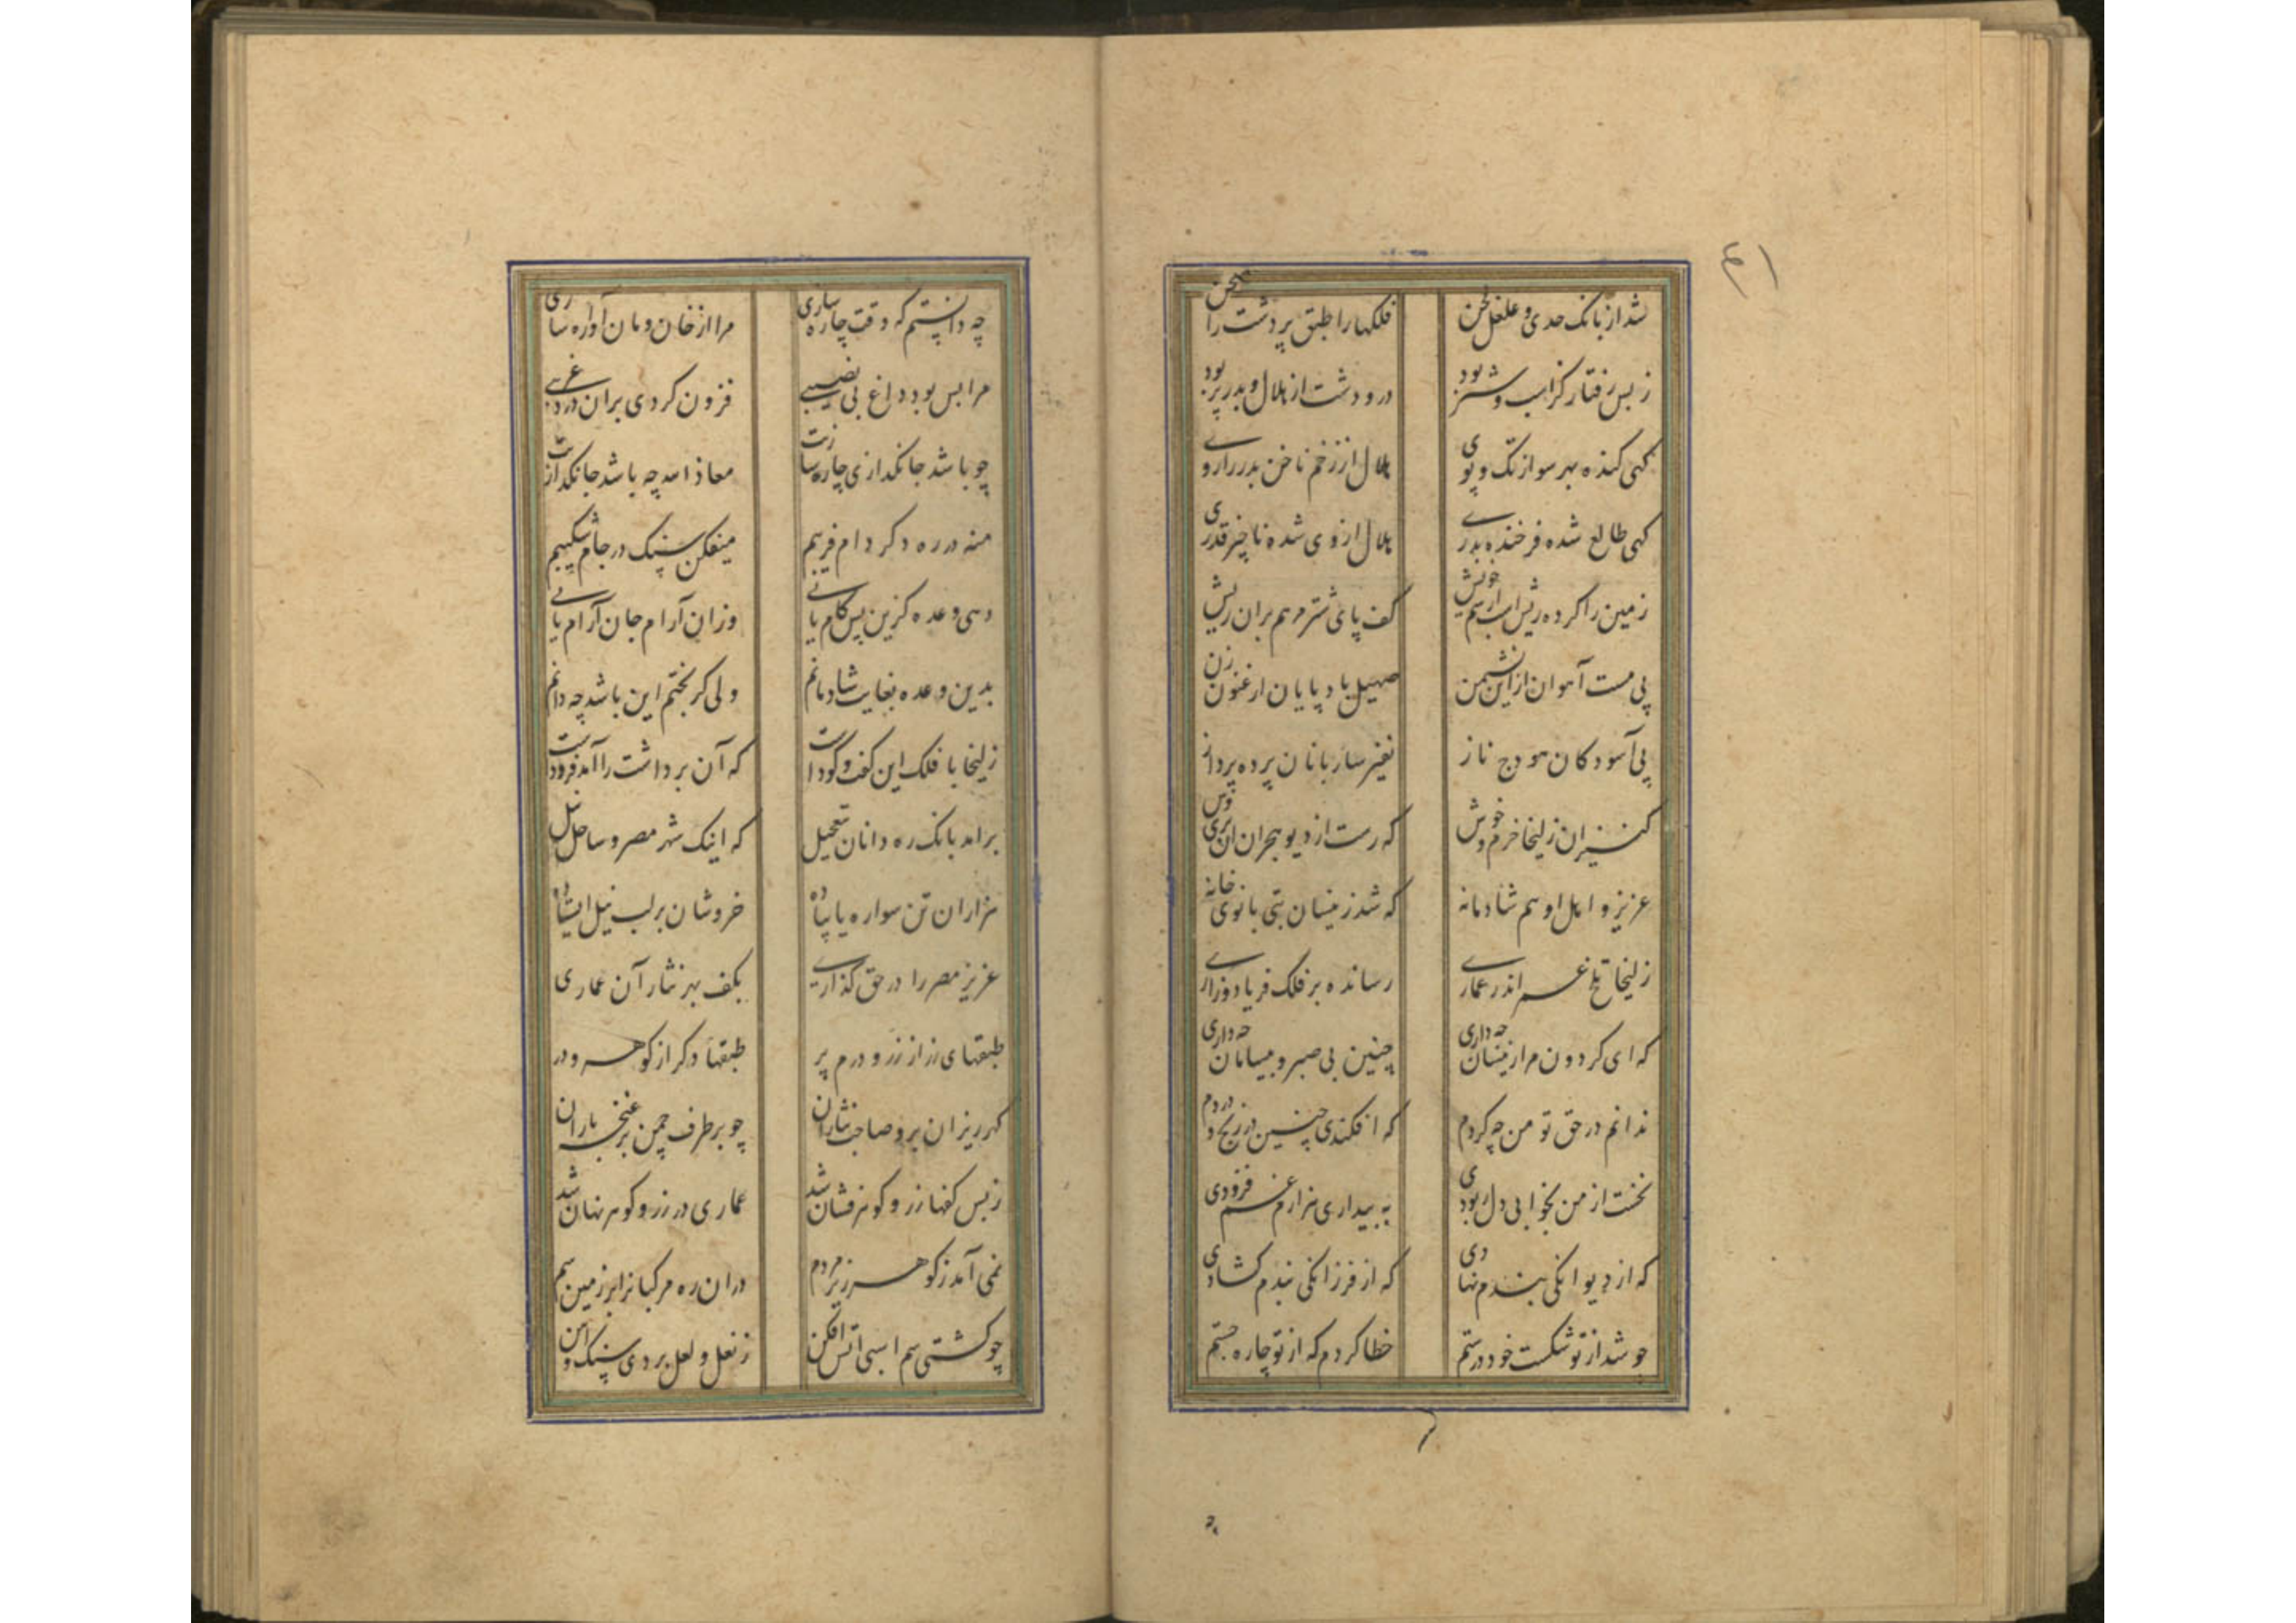 ۴۱
شد از بانک حدی و غلغل لحن
فلکها را طبق پر دشت را صحن
ز بس رفتار کز اسب و شتر بود
در و دشت از هلال و بدر پر بود
کهی کنده بهر سو از تک و پوی
هلال از زخم ناخن بدر را روی
کهی طالع شده فرخنده بدری
هلال از وی شده ناچیز قدری
زمین را کرده ریش اسب از سم خویش
کف پای شتر مرهم بران ریش
پی مست آهوان از این نشیمن
صهیل باد پایان ارغنون زن
پی آسودکان هودج ناز
نفیر ساربانان پرده پرداز
کنیزان زلیخا خرم و خوش
که رست از دیو هجران آن پری وش
عزیز و اهل او هم شادمانه
که شد زینسان بتی بانوی خانه
زلیخا تلخ عمر اندر عماری
رسانده بر فلک فریاد و زاری
که ای کردون مرا زینسان چه داری
چنین بی صبر و بیسامان چه داری
ندانم در حق تو من چه کردم
که افکندی چنین در رنج و دردم
نخست از من بخوابی دل ربودی
به بیداری هزارم غم فزودی
که از دیوانکی بندم نهادی
که از فرزانکی بندم کشادی
چو شد از تو شکست خود درستم
خطا کردم که از تو چاره جستم
چه دانستم که وقت چاره سازی
مرا از خان و مان آواره سازی
مرا بس بود داغ بی نصیبی
فزون کردی بران درد غریبی
چو باشد جانکدازی چاره سازیت
معاذ الله چه باشد جانکدازیت
منه در ره دکر دام فریبم
میفکن سنک در جام شکیبم
دهی وعده کزین پس کام یابی
وزان آرام جان آرام یابی
بدین وعده بغایت شادمانم
ولی کر بختم این باشد چه دانم
زلیخا با فلک این کفت و کو داشت
که آن برداشت را آمد فرو داشت
برامد بانک ره دانان بتعجیل
که اینک شهر مصر و ساحل نیل
هزاران تن سواره یا پیاده
خروشان بر لب نیل ایستاده
عزیز مصر را در حق کذاری
بکف بهر نثار آن عماری
طبقهای زر از زر و درم پر
طبقها دکر از کوهر و در
کهر ریزان برو صاحب نثاران
چو بر طرف چمن بر غنچه باران
ز بس کفها زر و کوهر فشان شد
عماری در زر و کوهر نهان شد
نمی آمد ز کوهر زیر مردم
دران ره مرکبانرا بر زمین سم
چو کشتی سم اسبی آتش افکن
ز نعل و لعل بردی سنک و آهن